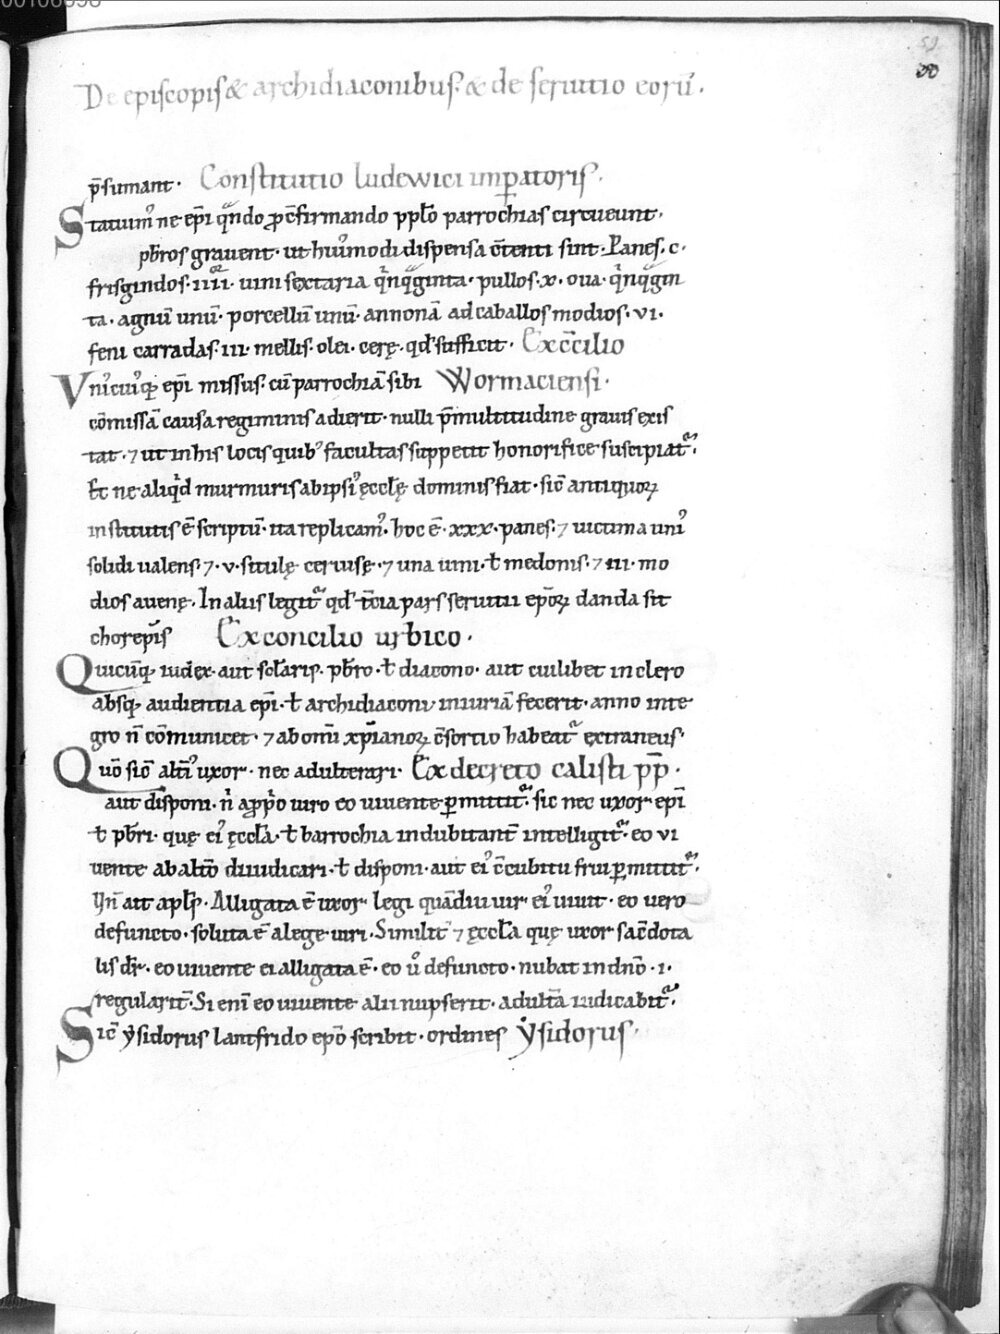 00106098
59
De episcopis & archidiaconibus. & de seruitio eorū.
p̄sumant. Constitutio ludewici imꝑatoris.
Statuimꝰ ne ep̄i qn̄do ꝓ c̄firmando pp̄lo parrochias circueunt.
pb̄ros grauent. ut huiꝰmodi dispensa c̄tenti sint. Panes. c.
frisgindos. iiii. uini sextaria qinqaginta. pullos. x. oua. qinqagin
ta. agnū unū. porcellū unū. annonā ad caballos modios. vi.
feni carradas. iii. mellis. olei. cerę. qđ sufficit. Ex c̄cilio
Vniꝰcuiꝰq; ep̄i missus. cū parrochiā sibi Wormaciensi.
cōmissā causa regiminis adierit. nulli p̄ multitudine grauis exis
tat. ⁊ ut in his locis quibꝰ facultas suppetit honorifice suscipiat᷑.
Et ne aliqd murmuris ab ipsiꝰ ęcclę dominis fiat. sic̄ antiquoꝝ
institutis ē scriptū. ita replicamꝰ. hoc ē. xxx. panes. ⁊ uictima uniꝰ
solidi ualens. ⁊. v. situlę ceruisę. ⁊ una uini. ł medonis. ⁊ iii. mo
dios auenę. In aliis legit᷑ qđ t̄cia pars seruitii ep̄oꝝ danda sit
chorep̄is Ex concilio urbico.
Quicūq; iudex. aut sclāris. pb̄ro. ł diacono. aut cuilibet in clero
absq; audientia ep̄i. ł archidiaconi iniuriā fecerit. anno inte
gro n̄ cōmunicet. ⁊ ab omī xp̄ianoꝝ c̄sortio habeat᷑ extraneus.
Quō sic̄ alt̄iꝰ uxor. nec adulterari. Ex decreto calisti pp̄.
aut disponi. n̄ a ꝓp̄o uiro eo uiuente ꝑmittit᷑. sic nec uxor ep̄i
ł pb̄ri. quę eiꝰ ęccła. ł barrochia indubitant̄ intelligit᷑. eo vi
uente ab alt̄o diiudicari. ł disponi. aut eiꝰ c̄cubitu frui ꝑmittit᷑.
Vn̄ ait apl̄s. Alligata ē uxor legi quādiu uir eiꝰ uiuit. eo uero
defuncto. soluta ē a lege uiri. Similit̄ ⁊ ęccła quę uxor sac̄dota
lis dr̄. eo uiuente ei alligata ē. eo u̇ defuncto. nubat in dn̄o. i.
regularit̄. Si enī eo uiuente alii nupserit. adult̄a iudicabit᷑.
Sic̄ ẏsidorus lantfrido ep̄o scribit. ordines ẏsidorus.